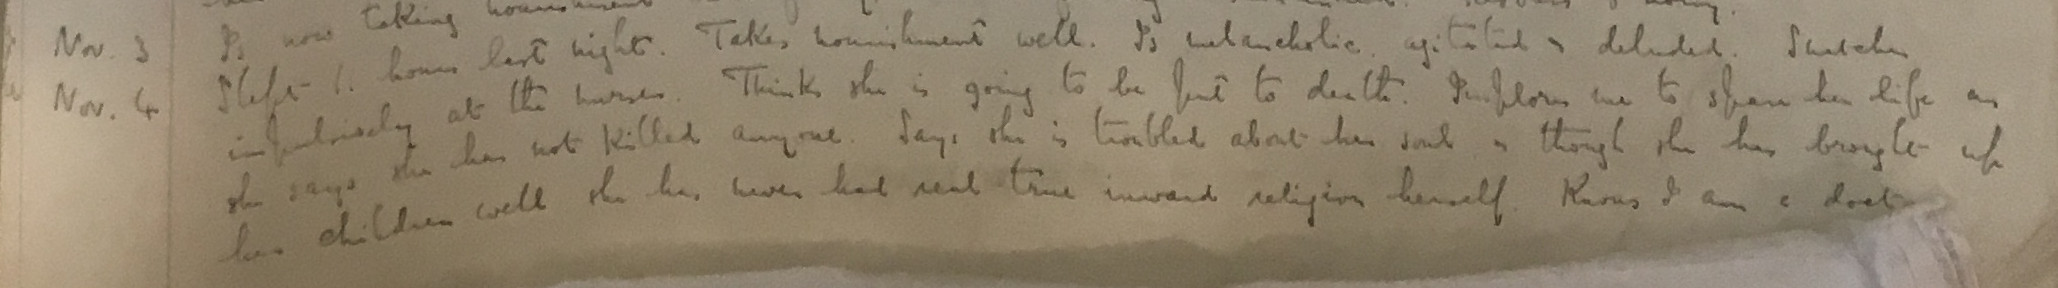 Nov. 3 Is now taking nourishment
Nov. 4 Slept hours last night. Takes nourishment well. Is melancholic, agitated & deluded. Snatches
impulsively at the nurses. Thinks she is going to be put to death. Implores me to spare her life as
she says she has not killed anyone. Says she is troubled about her soul & though she has brought up
her children well she has never had real true inward religion herself. Knows I am a doct